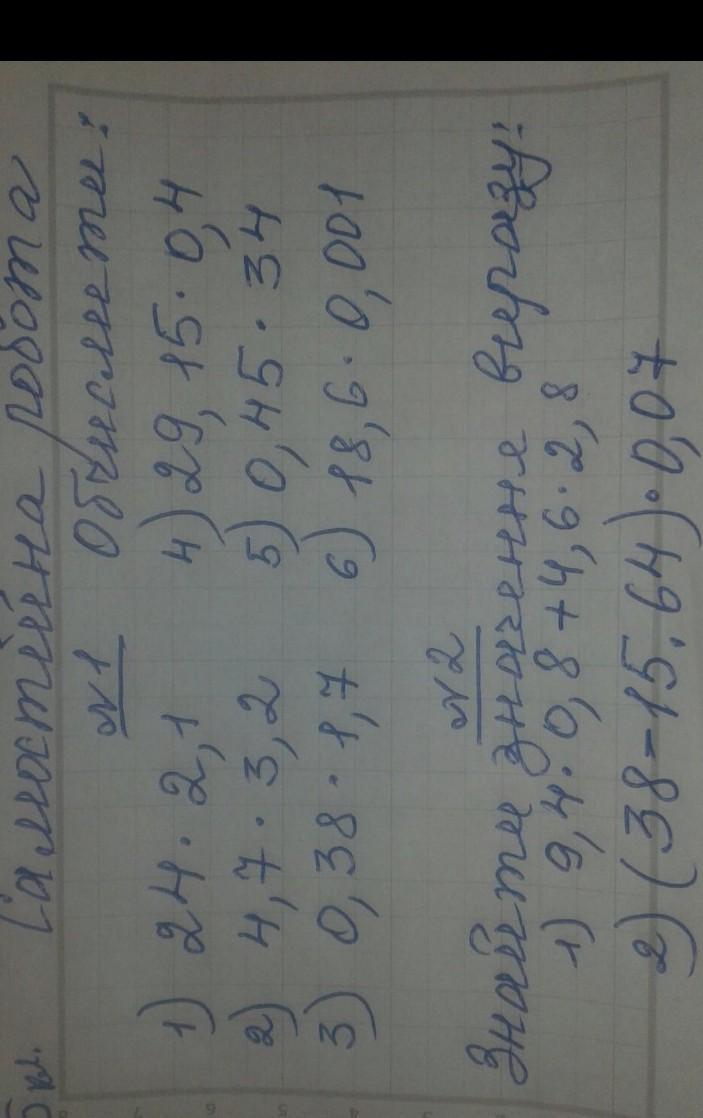 5 кл. Самостійна робота
№1 Обчислити:
1) 24 · 2,1 4) 29,15 · 0,4
2) 4,7 · 3,2 5) 0,45 · 34
3) 0,38 · 1,7 6) 18,6 · 0,001
№2
Знайти значення виразу:
1) 9,4 · 0,8 + 4,6 · 2,8
2) (38 - 15.64) · 0,07